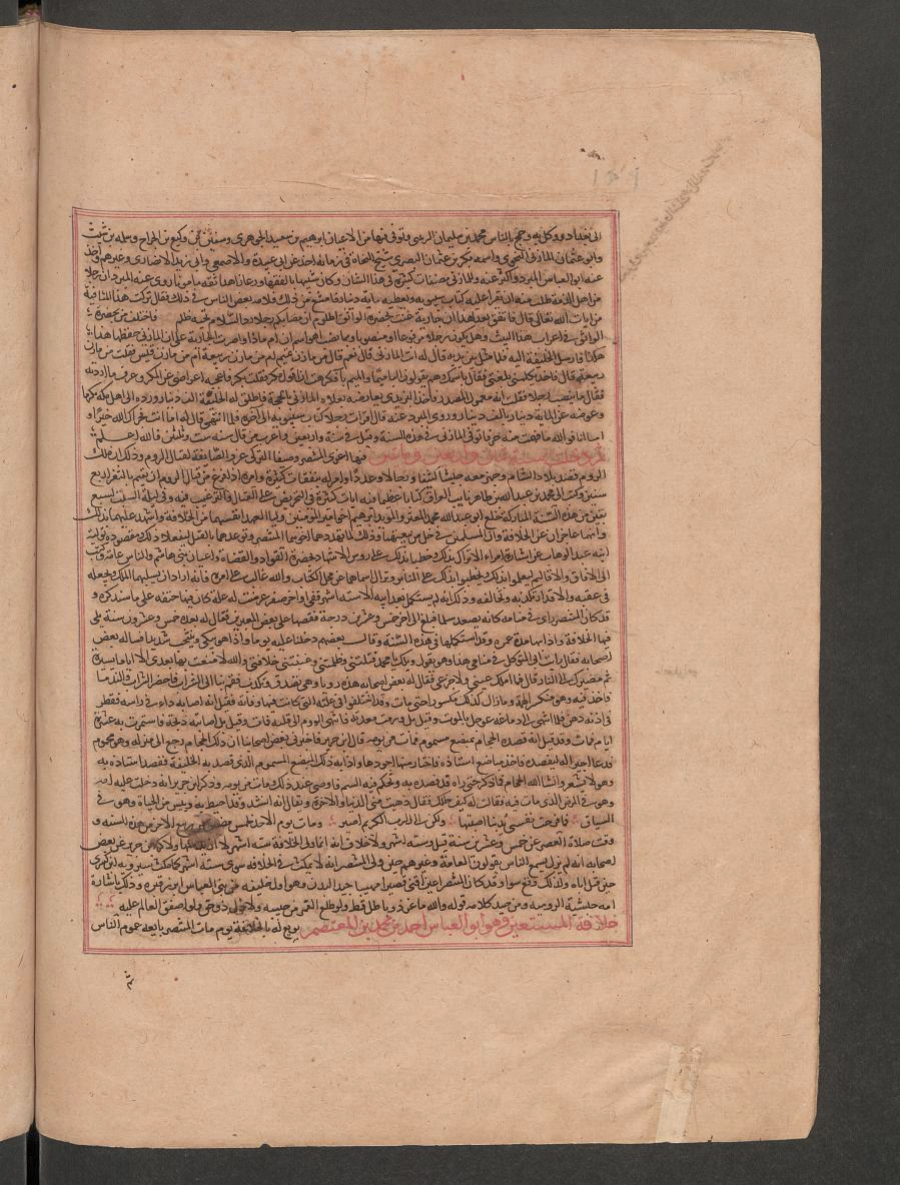 الى بغداد ووكل به وحج بالناس محمد بن سليمان الزينبي وتوفى فيها من الاعيان ابرهيم بن سعيد الجوهري وسفيان بن وكيع بن الجراح وسلمه بن شبيب
وابو عثمان المازني النحوي واسمه بكر بن عثمان البصري شيخ النحاة في زمانه اخذ عن ابي عبيدة والاصمعي وابي زيد الانصاري وغيرهم واخذ
عنه ابو العباس المبرد واكثر عنه وللمازني مصنفات كثيرة في هذا الشان وكان شبيها بالفقها ورعا زاهدا ثقة مامونا روى عنه المبرد ان رجلا
من اهل الذمة طلب منه ان يقرا عليه كتاب سيبويه ويعطيه ماية دينار فامتنع من ذلك فلامه بعض الناس في ذلك فقال تركت هذا لما فيه
من ايات الله تعالى قال فاتفق بعد هذا ان جارية غنت بحضرة الواثق اظلوم ان مصابكم رجلا رد السلام تحية ظلم فاختلف من بحضرة
الواثق في اعراب هذا البيت وهل يكون رجلا مرفوعا او منصوبا وبما نصب اهو اسم ان ام ماذا واصرت الجارية على ان المازني حفظها هذا
هكذا فارسل الخليفة اليه فلما مثل بين يديه قال له انت المازني قال نعم قال من مازن تميم ام من مازن ربيعة ام من مازن قيس فقلت من مازن
ربيعة قال فاخذ يكلمني بلغتي فقال باسمك وهم يقولون الباميما والميم با فكرهت ان اقول مكر فقلت بكر فاعجبه اعراضي عن المكر وعرف ما اردته
فقال ما ينصب رجلا فقلت انه معمول المصدر فاخذ اليزيدي يعارضه فعلاه المازني بالحجة فاطلق له الخليفة الف دينار ورده الى اهله مكرما
وعوضه عن الماية دينار بالف دينار وروى المبرد عنه قال اقرات رجلا كتاب سيبويه الى اخره فلما انتهى قال له اما انت فجزاك الله خيرا و
اما انا فوالله ما فهمت منه حرفا توفى المازني في هذه السنة وقيل في سنة واربعين واغرب من قال سنة ست وثلثين فالله اعلم
ثم دخلت سنة ثمان واربعين ومايتين فيها اغزى المنتصر وصيفا التركي غزو الصايفة لقتال الروم وذلك ان ملك
الروم قصد بلاد الشام وجهز معه جيشا كثيفا ورجالا وعددا وامر له بنفقات كثيرة وامره اذا فرغ من قتال الروم ان يقيم بالثغر اربع
سنين وكتب الى محمد بن عبد الله بن طاهر نايب العراق كتابا عظيما فيه ايات كثيرة في التحريض على القتال والترغيب فيه وفي ليلة السبت لسبع
بقين من هذه السنة المباركة خلع ابو عبد الله محمد المعتز والمويد ابرهيم اخوا امير المؤمنين وليا العهد انفسهما من الخلافة واشهد عليهما بذلك
وانهما عاجزان عن الخلافة وان المسلمين في حل من بيعتهما وذلك لما تهددهما اخوهما المنتصر وتوعدهما بالقتل ليفعلا ذلك مقصوده تولية
ابنه عبد الوهاب عن اشارة امراء الاتراك بذلك وخطبا بذلك على روس الاشهاد بحضرة القواد والقضاة واعيان بني هاشم والناس عامة وكتب
الى الافاق والاقاليم ليعلموا بذلك ليخطبوا بذلك على المنابر وتزال اسماهما من محل الكتاب والله غالب على امره فانه اراد ان يسلبهما الملك ويجعله
في عقبه والاقدار تكذبه وتخالفه وذلك انه لم يستكمل بعد ابيه الا ستة اشهر ففي اواخر صفر عرضت له علة كان فيها حتفه على ما سنذكره و
قد كان المنتصر راى في منامه كانه يصعد سلما فبلغ الى اخر خمس وعشرين درجة فقصها على بعض المعبرين فقال له بعد خمس وعشرون سنة تلي
فيها الخلافة واذا بها مدة عمره وقد استكملها في هذه السنة وقال بعضهم دخلنا عليه يوما فاذا هو يبكي وينتحب شديدا فساله بعض
اصحابه فقال رايت ابي المتوكل في منامي هذا وهو يقول ويلك يا محمد قتلتني وظلمتني وغصبتني خلافتي والله لا متعت بها بعدي الا اياما يسيرة
ثم مصيرك الى النار قال فما املك عيني ولا جزعي فقال له بعض اصحابه هذه رويا وهي تصدق وتكذب فقم بنا الى الشراب فاحضر الشراب والندما
فاخذ فيه وهو منكسر الهمة وما زال كذلك مكسورا حتى مات وقد اختلفوا في علته التي كانت فيها وفاته فقيل انه اصابه داء في راسه فقطر
في اذنه دهن فلما انتهى الى دماغه عوجل بالموت وقيل بل ورمت معدته فانتهى الورم الى قلبه فمات وقيل بل اصابته ذبحة فاستمرت به عشرة
ايام فمات وقد قيل انه فصده الحجام بمبضع مسموم فمات من يومه قال ابن جرير فاخبرني بعض اصحابنا ان ذلك الحجام رجع الى منزله وهو محموم
فدعا اجيرا له ليفصده فاخذ مباضع استاذه فاختار منها اجودها واذا به ذلك المبضع المسموم الذي فصد به الخليفة ففصد استاذه به
وهو لا يشعر وانسا الله الحجام فما ذكر حتى راه قد فصده به وتحكم فيه السم فاوصى عند ذلك مات من يومه وذكر ابن جرير انه دخلت عليه امه
وهو في المرض الذي مات فيه فقالت له كيف حالك فقال ذهبت مني الدنيا والاخرة ويقال انه انشد وقد احيط به ويئس من الحياة وهو في
السياق فما فرحت نفسي بدنيا اصبتها ولكن الى الرب الكريم اصير ومات يوم الاحد لخمس من ربيع الاخر من هذه السنة و
وقت صلاة العصر عن خمس وعشرين سنة قيل وستة اشهر ولا خلاف انه انما ولى الخلافة ستة اشهر لا ولا كما جرير عن بعض
اصحابه انه لم يزل يسمع الناس يقولون العامة وغيرهم حين ولى المنتصر انه لا يمكث في الخلافة سوى ستة اشهر كما مكث شيرويه ابن كسرى
حين قتل اباه وكذلك وقع سوا وقد كان المنتصر اعين اقنى قصيرا مهيبا جيد البدن وهو اول خليفة من بني العباس ابرز قبره وذلك باشارة
امه حبشية الرومية ومن جيد كلامه قوله والله ما عز ذو باطل قط ولو طلع القمر من جبينه ولا ذل ذو حق ولو اصفق العالم عليه
خلافة المستعين وهو ابو العباس احمد بن محمد بن المعتصم بويع له بالخلافة يوم مات المنتصر بايعه عموم الناس
ثم